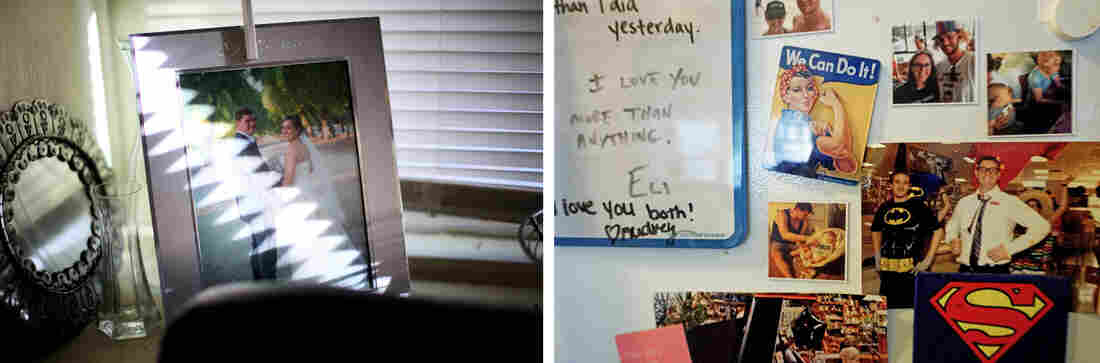 than I did
yesterday.
I LOVE YOU
MORE THAN
ANYTHING.
Eli
I love you both!
♡Audrey
We Can Do It!
S